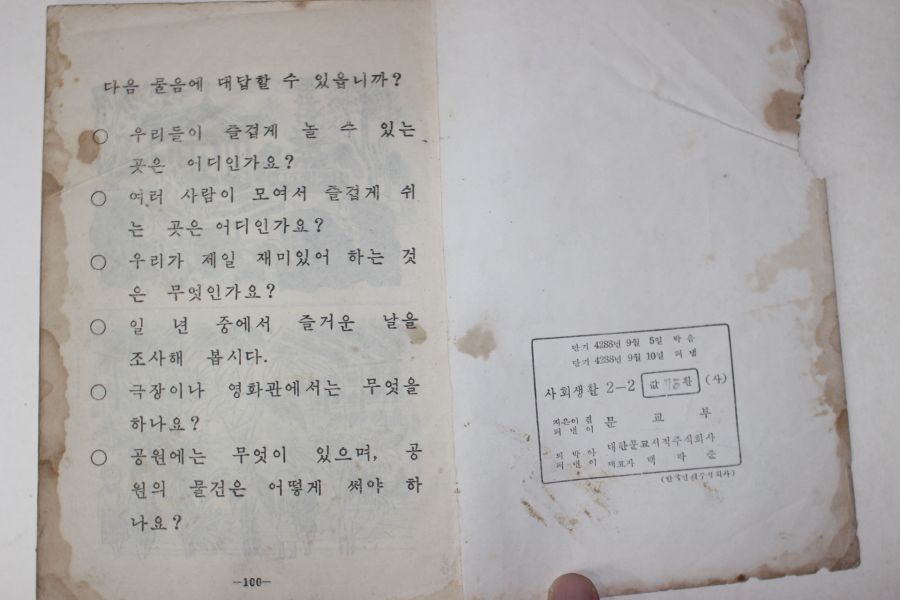 다음 물음에 대답할 수 있읍니까?
○ 우리들이 즐겁게 놀 수 있는
곳은 어디인가요?
○ 여러 사람이 모여서 즐겁게 쉬
는 곳은 어디인가요?
○ 우리가 제일 재미있어 하는 것
은 무엇인가요?
○ 일 년 중에서 즐거운 날을
조사해 봅시다.
○ 극장이나 영화관에서는 무엇을
하나요?
○ 공원에는 무엇이 있으며, 공
원의 물건은 어떻게 써야 하
나요?
—100—
단기 4288년 9월 5일 박음
단기 4288년 9월 10일 펴냄
사회생활 2—2 값 환 (사)
지은이 겸
펴낸이 문 교 부
펴낸이 대한문교서적주식회사
대표자 백 학